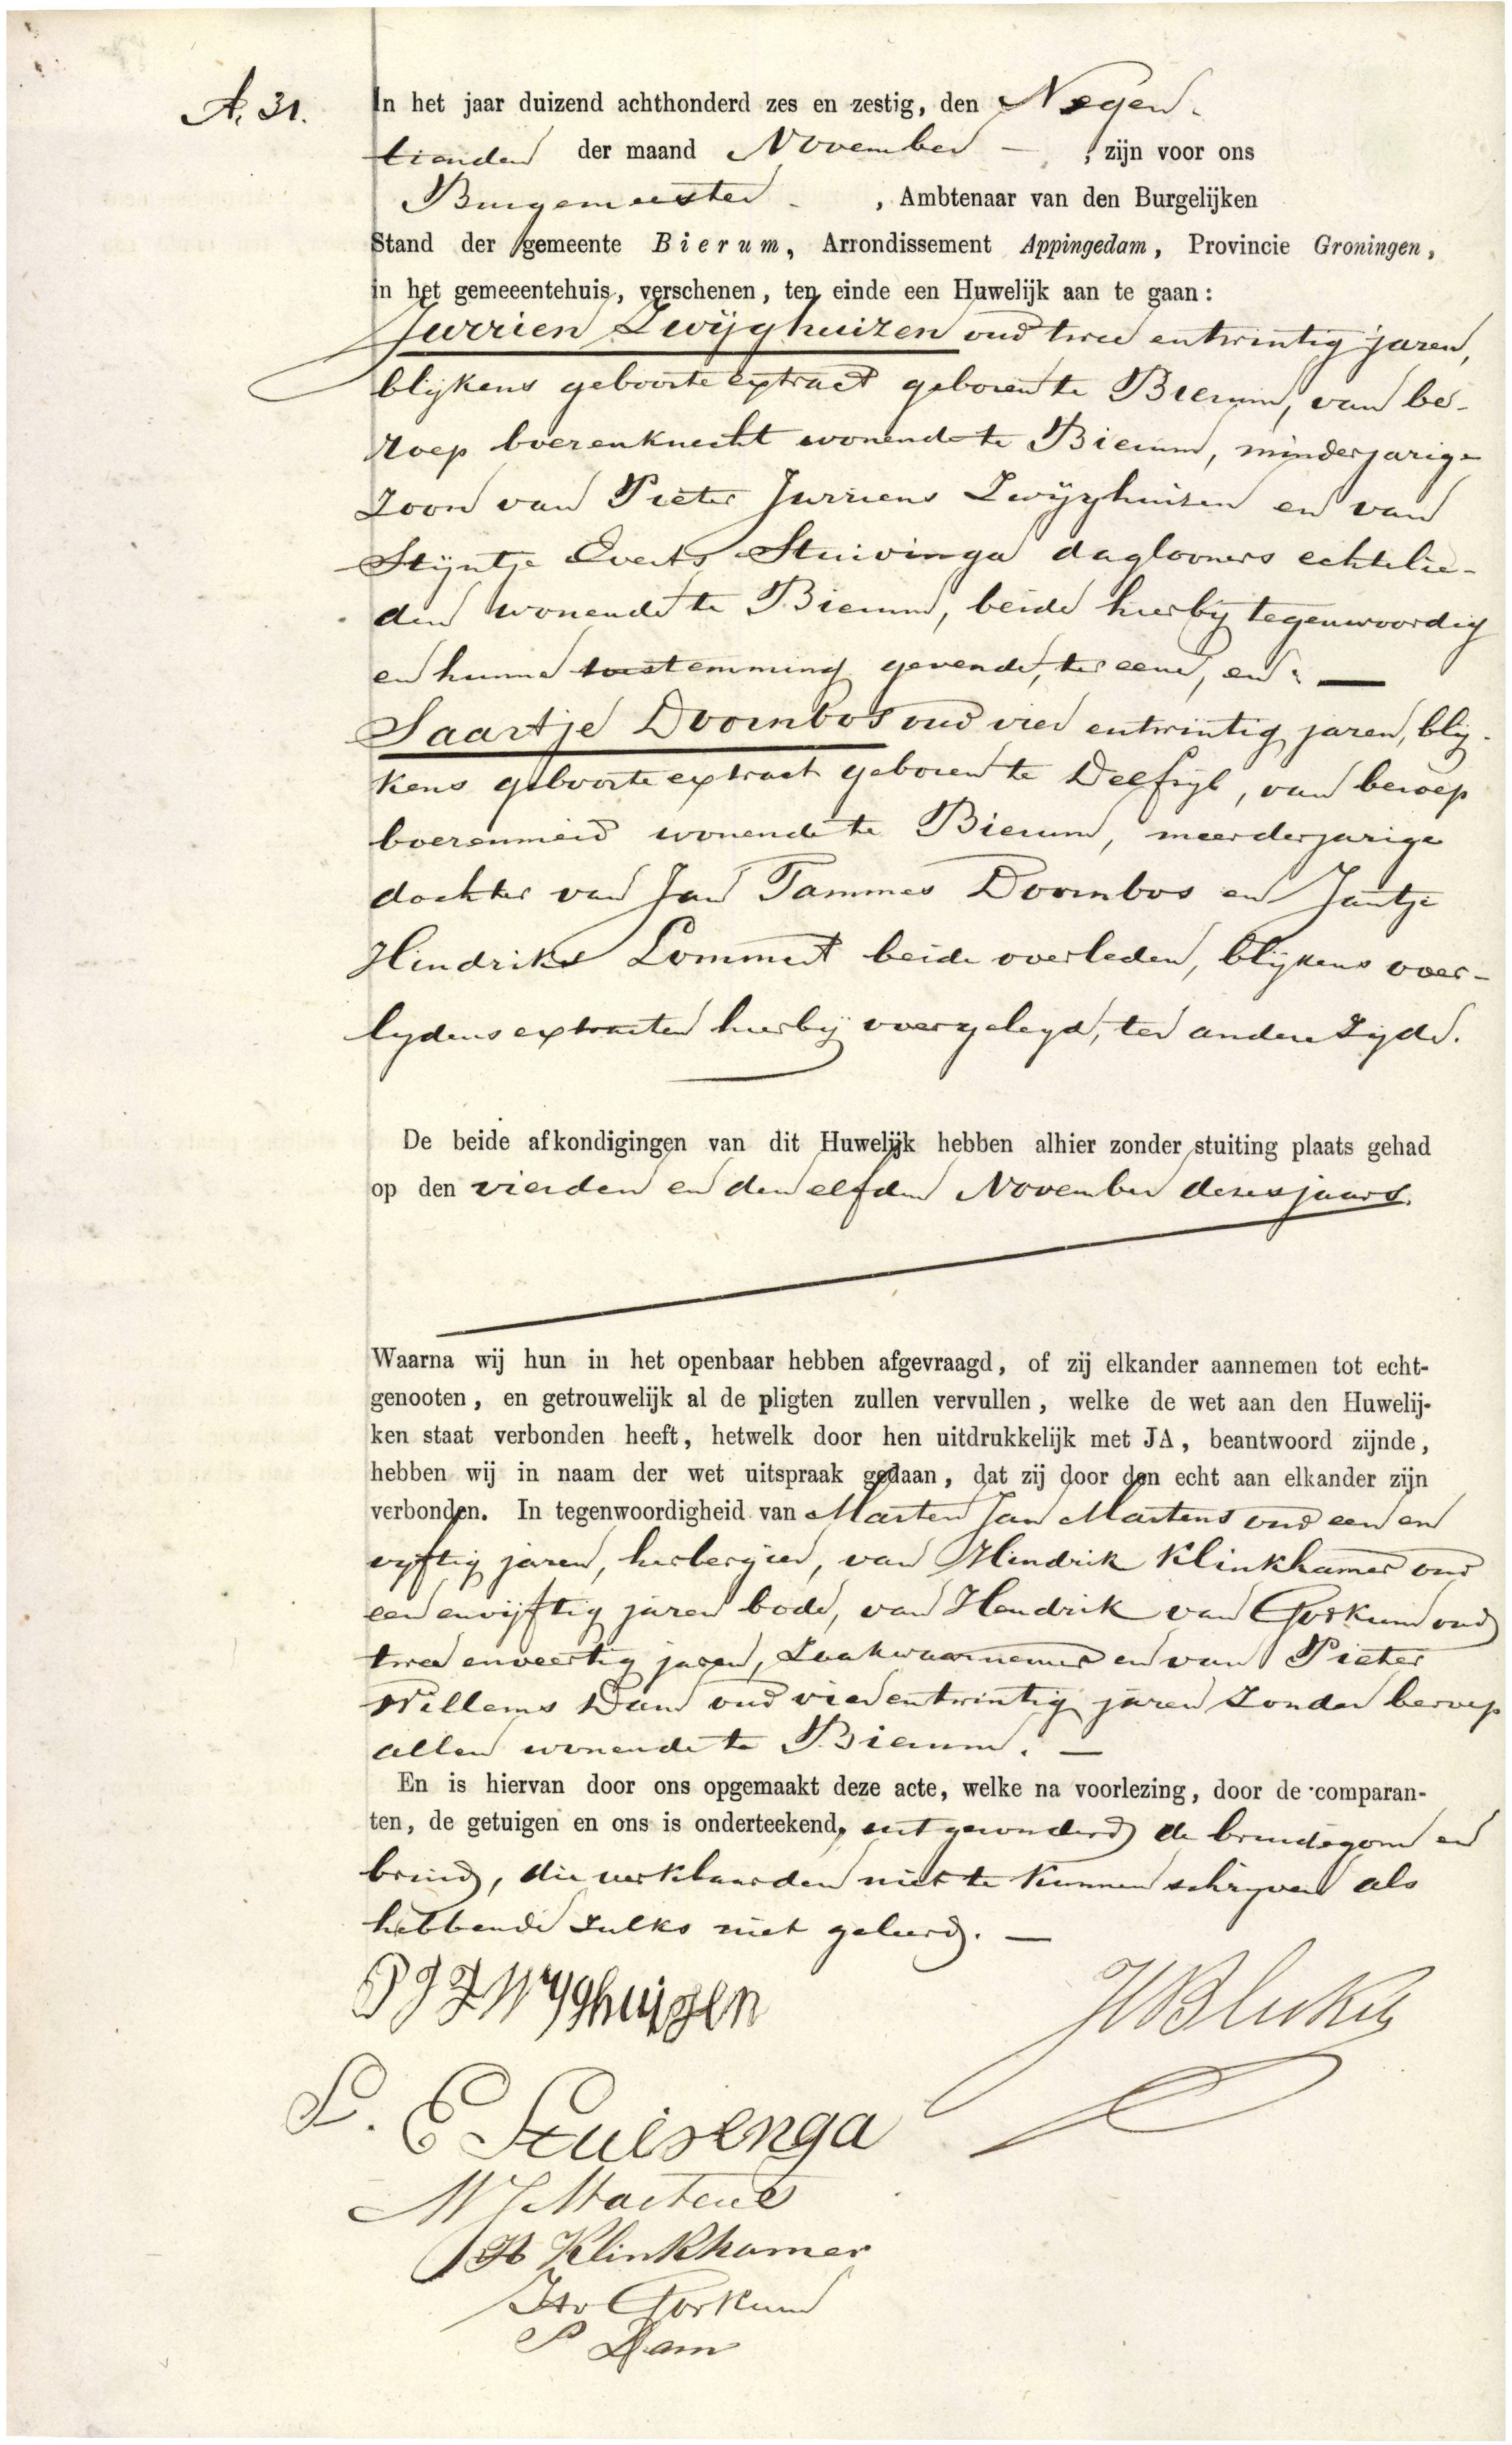 A. 31.
In het jaar duizend achthonderd zes en zestig, den Negen-
tienden der maand November — , zijn voor ons
Burgemeester - , Ambtenaar van den Burgelijken
Stand der gemeente Bierum, Arrondissement Appingedam, Provincie Groningen,
in het gemeeentehuis, verschenen, ten einde een Huwelijk aan te gaan:
Jurrien Zwijghuizen oud twee entwintig jaren,
blijkens geboorte extract geboren te Bierum, van be-
roep boerenknecht wonende te Bierum, minderjarige
zoon van Pieter Jurriens Zwijghuizen en van
Stijntje Everts Stuivinga daglooners echtelie-
den wonende te Bierum, beide hierbij tegenwoordig
en hunne toestemming gevende, ter eene, en: —
Saartje Doornbos oud vier entwintig jaren, blij-
kens geboorte extract geboren te Delfzijl, van beroep
boerenmeid wonende te Bierum, meerderjarige
dochter van Jan Tammes Doornbos en Jantje
Hindriks Lommert beide overleden, blijkens over-
lydens extracten hierbij overgelegd, ter andere zijde.
De beide afkondigingen van dit Huwelijk hebben alhier zonder stuiting plaats gehad
op den vierden en den elfden November dezes jaars.
Waarna wij hun in het openbaar hebben afgevraagd, of zij elkander aannemen tot echt-
genooten, en getrouwelijk al de pligten zullen vervullen, welke de wet aan den Huwelij-
ken staat verbonden heeft, hetwelk door hen uitdrukkelijk met JA, beantwoord zijnde,
hebben wij in naam der wet uitspraak gedaan, dat zij door den echt aan elkander zijn
verbonden. In tegenwoordigheid van Marten Jan Martens oud een en
vyftig jaren, herbergier, van Hindrik Klinkhamer oud
een envijftig jaren bode, van Hendrik van Gorkum oud
twee enveertig jaren, zaakwaarnemer en van Pieter
Willems Dam oud vier entwintig jaren zonder beroep
allen wonende te Bierum. —
En is hiervan door ons opgemaakt deze acte, welke na voorlezing, door de comparan-
ten, de getuigen en ons is onderteekend, uitgezonderd de bruidegom en
bruid, die verklaarden niet te kunnen schrijven als
hebbende zulks niet geleerd. —
P J Zwyghuizen
S. E Stuivenga
M J Martens
H Klinkhamer
H v Gorkum
P Dam